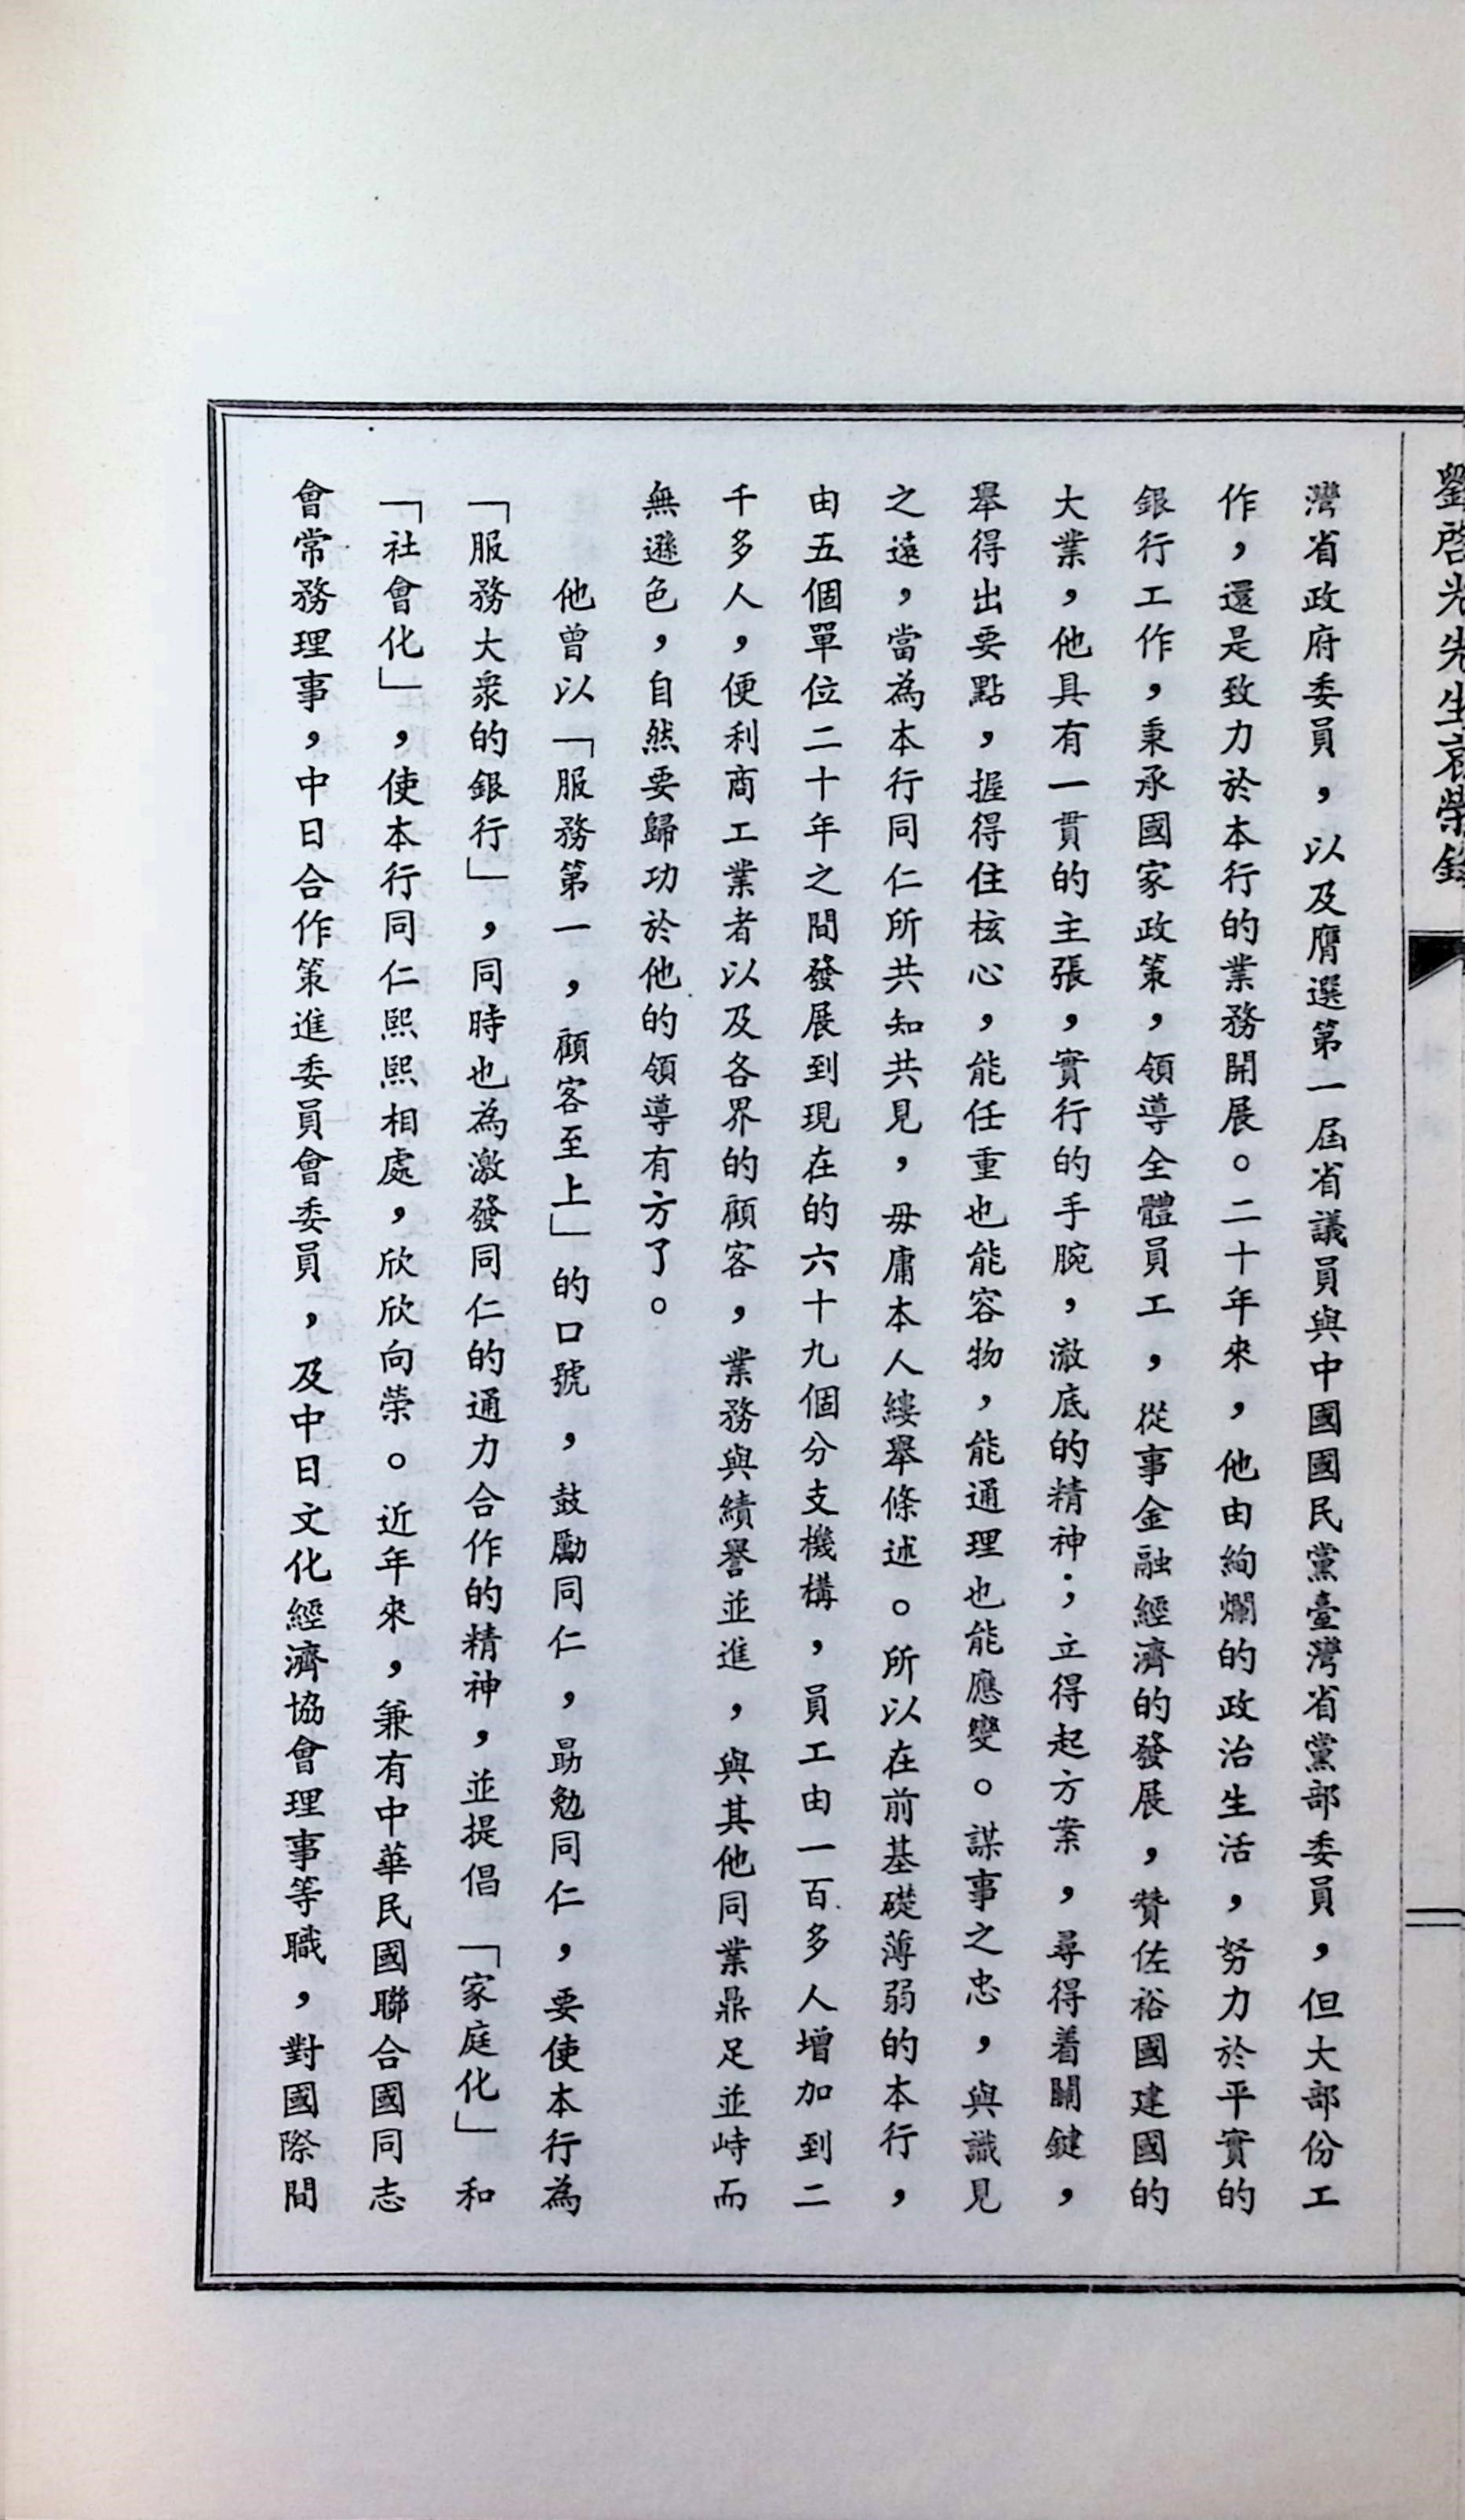 劉啓光先生哀榮錄
灣省政府委員，以及膺選第一屆省議員與中國國民黨臺灣省黨部委員，但大部份工
作，還是致力於本行的業務開展。二十年來，他由絢爛的政治生活，努力於平實的
銀行工作，秉承國家政策，領導全體員工，從事金融經濟的發展，贊佐裕國建國的
大業，他具有一貫的主張，實行的手腕，澈底的精神；立得起方案，尋得着關鍵，
舉得出要點，握得住核心，能任重也能容物，能通理也能應變。謀事之忠，與識見
之遠，當為本行同仁所共知共見，毋庸本人縷舉條述。所以在前基礎薄弱的本行，
由五個單位二十年之間發展到現在的六十九個分支機構，員工由一百多人增加到二
千多人，便利商工業者以及各界的顧客，業務與績譽並進，與其他同業鼎足並峙而
無遜色，自然要歸功於他的領導有方了。
他曾以「服務第一，顧客至上」的口號，鼓勵同仁，勗勉同仁，要使本行為
「服務大衆的銀行」，同時也為激發同仁的通力合作的精神，並提倡「家庭化」和
「社會化」，使本行同仁熙熙相處，欣欣向榮。近年來，兼有中華民國聯合國同志
會常務理事，中日合作策進委員會委員，及中日文化經濟協會理事等職，對國際間